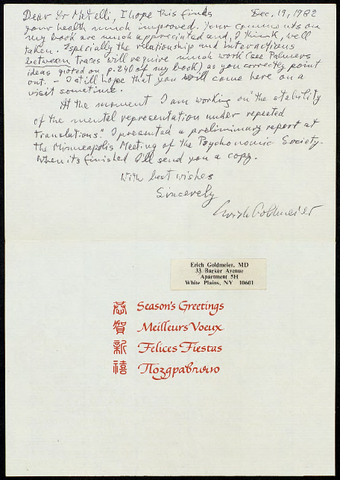 Dear Dr Metelli, I hope this finds Dec. 19, 1982
your health much improved. Your comments on
my book are much appreciated and, I think, well
taken. Especially the relationship and interactions
between traces will require much work (see Palmers
ideas quoted on p. 240 of my book) as you correctly point
out. I still hope that you will come here on a
visit sometime.
At the moment I am working on the stability
of the mental representation under repeted
translations." I presented a preliminary report at
the Minneapolis Meeting of the Psychonomic Society.
When its finished I'll send you a copy.
With best wishes
Sincerely
Erich Goldmeier
Erich Goldmeier, MD
33 Barker Avenue
Apartment 5H
White Plains, NY 10601
恭 Season's Greetings
賀 Meilleurs Voeux
新 Felices Fiestas
禧 Поздравляю